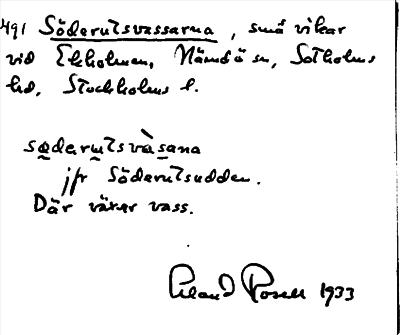 491 Söderutsvassarna, små vikar
vid Ekholmen, Nämdö sn, Sotholms
hd, Stockholms l.
söderutsvàsana
jfr Söderutsudden.
Där växer vass.
Erland Rosell 1933